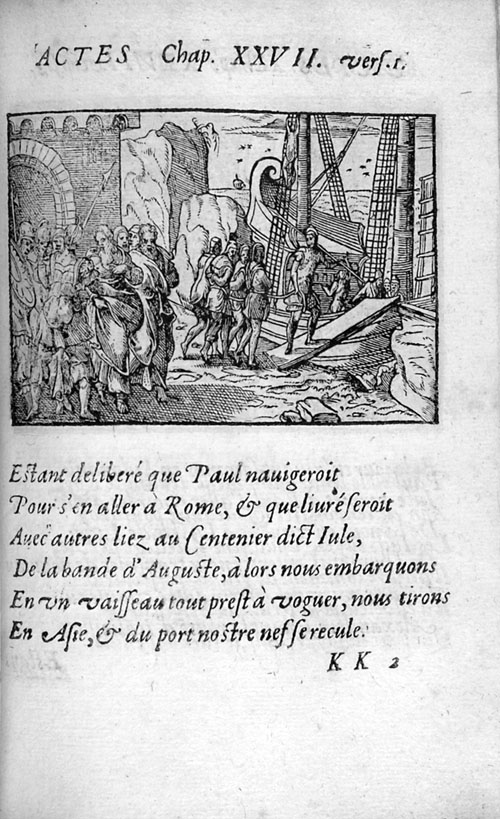 ACTES Chap. XXVII. vers.1.
Estant deliberé que Paul nauigeroit
Pour s'en aller à Rome, & que liuré seroit
Auec autres liez au Centenier dict Iule,
De la bande d'Auguste, à lors nous embarquons
En vn vaisseau tout prest à voguer, nous tirons
En Asie, & du port nostre nef se recule.
KK 2